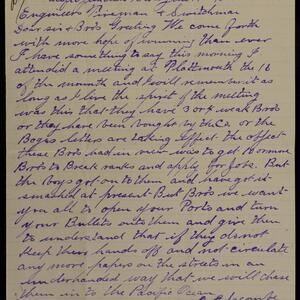 Engineer Fireman & Switchman
Dear sir & Bros Greeting We come forth
with more hope of winning than ever
I have something to say this morning I
attended a meeting at Plattsmouth the 16
of the month and I will remember it as
long as I live the spirit of the meeting
was this that they have 3 or 4 weak Bros
or they have been bought by the Co. or the
Bogus letters are taking effect the effect
these Bros had in view was to get 13 or more
Bros to Break ranks and apply for Jobs. But
the boys got on to them and have got it
smashed at present But Bros we want
you all to open your Ports and turn
your Bullets onto them and give them
to understand that if they do not
Keep there hands off and not circulate
any more papers on the streets in an
underhanded way that we will chase
them in to the Pacific Ocean